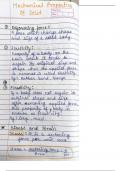 Mechanical Properties
of Solid
Deforming force:
A force which change shape
and size of a solid body.
Elasticity:
Property of a body
its original size and
shape when the applied force
is removed is called elasticity
Eg: Rubber band,
Plasticity:
If a body does not regain its
original shape and size
after removing applied force,
this property of a body
known as plasticity.
Eg: Clay, mud.
Stress and Strain
Stress: It is a restoring
force per unit area
Stress = restoring force = F
Area A